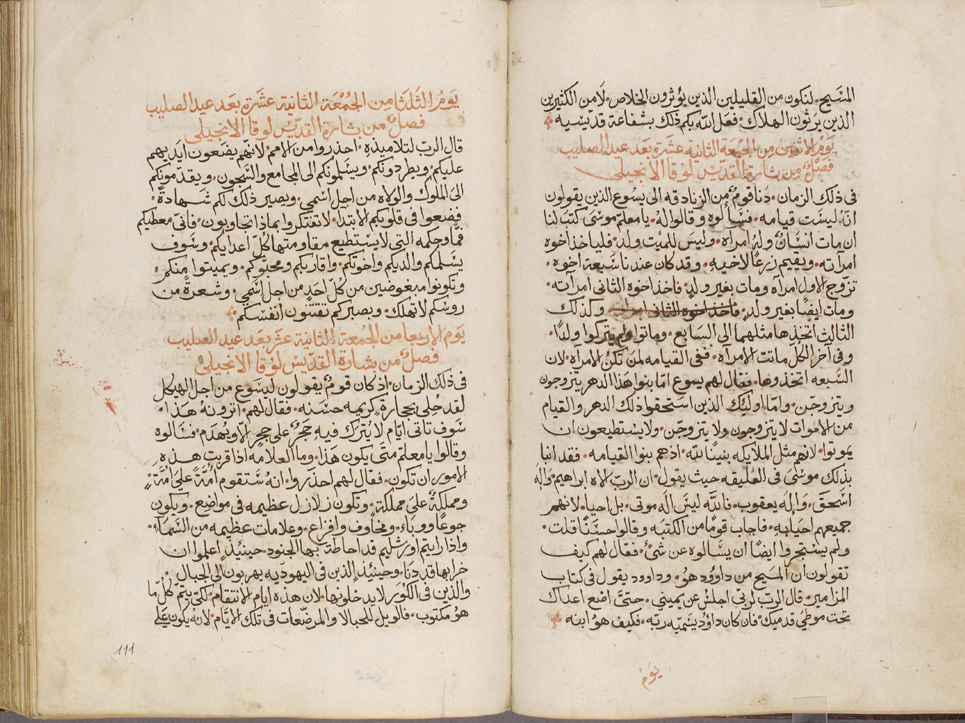 المسَيح. لنكون من القليلين الذين يؤثرون الخلاص. لا من الكثيرين
الذين يرثون الهلاك. فعل الله بكم ذلك بشفاعة قديسيه
يَومُ الاثنين من الجمعة الثانيه عشرة بعد عيد الصليب
فصْل من بشارة القديس لوقا الانجيلى
فى ذلك الزمان. دَنا قومٌ من الزنادقه الى يسُوع الذين يقولون
انهُ ليسَت قيامه. فسَالوه وقالوا لهُ. يا معلم موسَى كتبَ لنا
ان مات انسَانٌ وله امراه. وليسَ للميت ولد. فلياخذ اخوه
امراته. ويقيم زرعًا لاخيه. وقد كان عندنا سَبعة اخوه.
تزوج الاول امراه ومات بغير ولدٍ. فاخذ اخوه الثانى امراته.
ومات ايضًا بغير ولدٍ. فاخذ اخوه الثانى امراته. وكذلك
الثالث اتخذها مثلهما الى السابع. وماتوا ولم يتركوا ولدًا.
وفى آخر الكل ماتت الامراه. ففى القيامه لمن تكن الامراه. لان
السَّبعه اتخذوها. فقال لهم يسوع امّا بنوا هذا الدهر يتزوجون
ويتزوجن. وامّا اوليك الذين استَحقوا ذلك الدهر والقيام
من الاموات لا يتزوجون ولا يتزوجن. ولا يستَطيعون ان
يموتوا. لانهم مثل الملايكه بنينًا لله. اذ هم بنوا القيامه. فقد انبا
بذلك موسَى فى العليقه حيث يقول. ان الرب الاه ابراهيم. واله
اسْحق. واله يعقوب. فالله ليسَ اله موتى. بل احيا. لانهم
جميعهم احيا به. فاجاب قومًا من الكتبه وقالوا حسَنًا قلت.
ولم يستَجروا ايضًا ان يسَالوه عن شىءٍ. فقال لهم كيف
تقولون ان المسَيح من داوود هو. وداوود يقول فى كتاب
المزامير. قال الرب لربى اجلسْ عن يمينى. حتى اضع اعداك
تحت موطى قدميك. فان كان داوُد يسَميه ربه. فكيف هو ابنه
يَومُ
يَومُ الثلثا من الجُمْعَة الثانية عشَرة بعَد عيد الصليب
فصْلٌ من بشارة القديس لوقا الانجيلى
قال الرب لتلاميذه. احذروا من الامم لانهم يضعون ايديهم
عليكم. ويطردونكم. ويسَلمونكم الى المجامع والسّجون. ويقدّمونكم
الى الملوك والولاه من اجل اسْمى. ويصير ذلك لكم شهادةً.
فضعوا فى قلوبكم الابتدا. لا تفتكروا بماذا تجاوبون. فانى معطيكم
فمًا وحكمه التى لا يسْتطيع مقاومتها كل اعدايكم. وسَوف
يسَلمكم والديكم واخوتكم. واقاربكم ومحبوكم. ويميتوا منكم.
وتكونوا مبغوضين من كل احدٍ من اجل اسْمى. وشعرةً من
روسكم لا تهلك. وبصبركم تقتنون انفسَكم.
يَوم الاربعا من الجمعة الثانية عشر بعد عيد الصليب
فصْلٌ من بشارة القديس لوقا الانجيلى
فى ذلك الزمان. اذ كان قومٌ يقولون ليسُوع من اجل الهيكل
لقد حُلى بحجارةٍ كريمه حسَنه. فقال لهم. اترونهُ هذا.
سَوف تاتى ايام لا يُترك فيه حَجرٌ على حجرٍ الا ويهدم. فسَالوه
وقالوا يا معلم متى يكون هذا. وما العلامه اذا قربت هذه
الامور ان تكون. فقال لهم احذروا. انهُ ستَقوم امّةٌ على امّةٍ.
ومملكةٌ على مملكةٍ. وتكون زلازل عظيمه فى مواضع. ويكون
جوعًا ووباءً. ومخاوف وافزاع. وعلامات عظيمه من السَّماء.
واذا رايتم اورشليم قد احاطة بها الجنود. حينيذٍ اعلموا ان
خرابها قد دَنا. وحينيذٍ الذين فى اليهوديه يهربون الى الجبال.
والذين فى الكوَر لا يدخلونها. لان هذه ايام الانتقام. لكى يتم كل ما
هو مكتوب. فالويل للحبالا والمرضعات فى تلك الايام. لانه يكون على
١١١